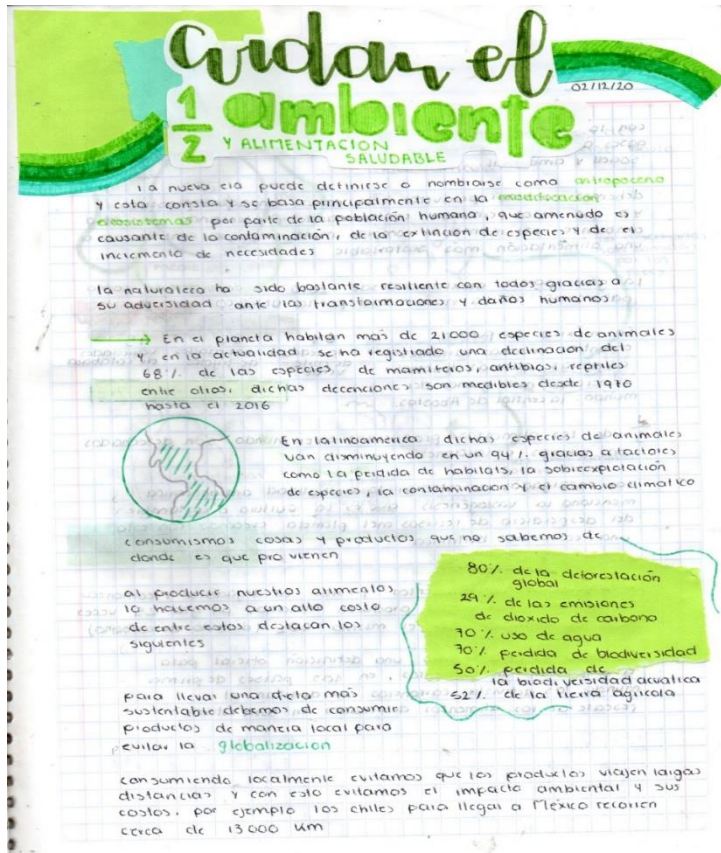 Cuidar el
02/12/20
1/2 ambiente
Y ALIMENTACION
SALUDABLE
la nueva era puede definirse o nombrarse como antropoceno
y esta consta y se basa principalmente en la modificacion
ecosistemas por parte de la población humana, que amenudo es
causante de la contaminación, de la extinción de especies y de el
incremento de necesidades
la naturaleza ha sido bastante resiliente con todos gracias a
su adversidad ante las transformaciones y daños humanos
→ En el planeta habitan mas de 21000 especies de animales
y en la actualidad se ha registrado una declinacion del
68% de las especies de mamiferos, anfibios, reptiles
entre otros, dichas decenciones son medibles desde 1970
hasta el 2016
En latinoamerica dichas especies de animales
van disminuyendo en un 94% gracias a factores
como la perdida de habitats, la sobreexplotación
de especies, la contaminacion y el cambio climatico
consumismos cosas y productos que no sabemos de
donde es que provienen
al producir nuestros alimentos
lo hacemos a un alto costo
de entre estos destacan los
siguientes
80% de la deforestación
global
29% de las emisiones
de dioxido de carbono
70% uso de agua
70% perdida de biodiversidad
50% perdida de
la biodiversidad acuatica
52% de la tierra agricola
para llevar una dieta mas
sustentable debemos de consumir
productos de manera local para
evitar la globalización
consumiendo localmente evitamos que los productos viajen largas
distancias y con esto evitamos el impacto ambiental y sus
costos, por ejemplo los chiles para llegar a México recorren
cerca de 13000 km